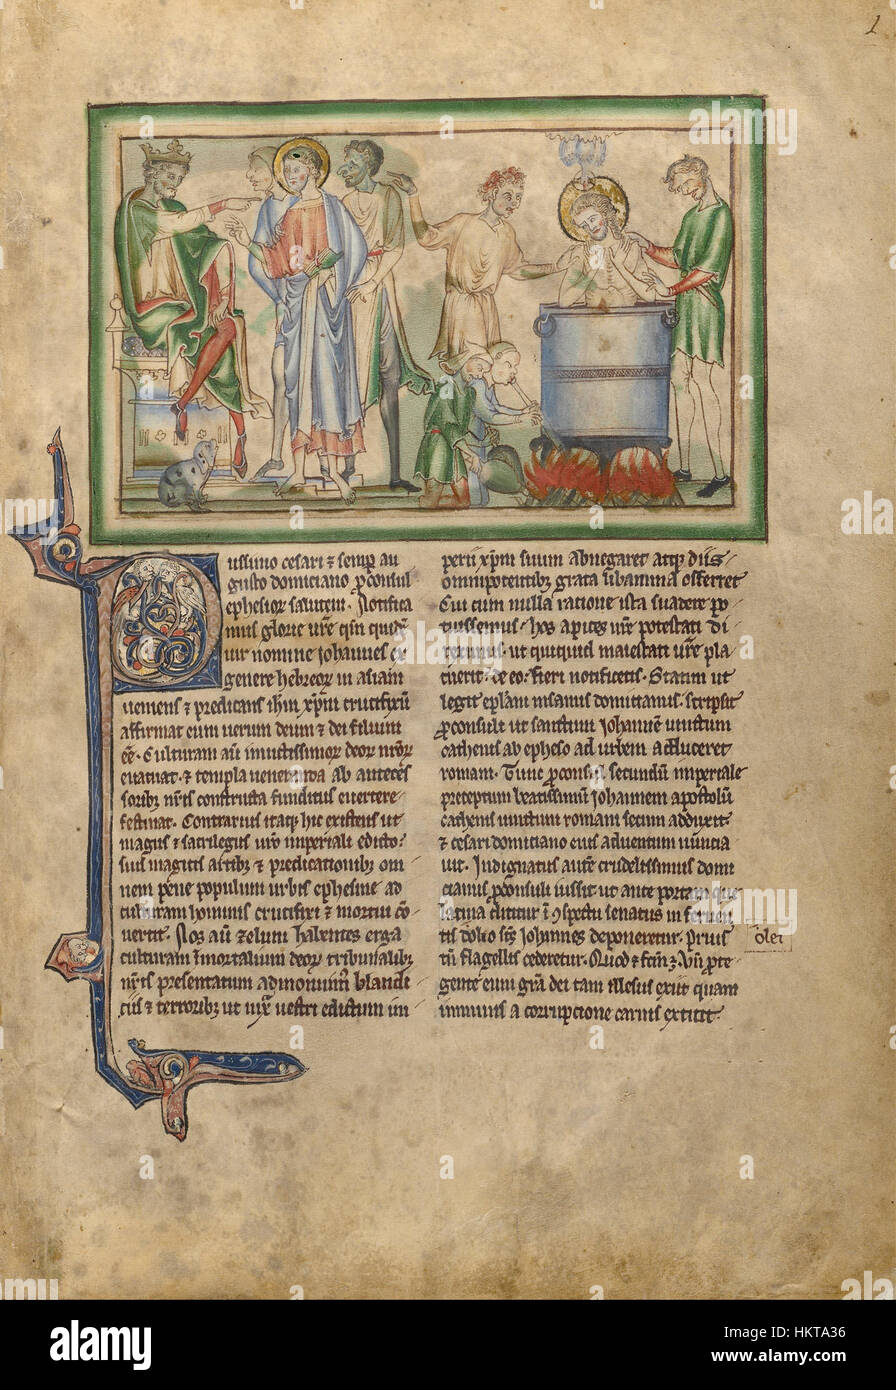 1
iissimo cesari ⁊ semp̲ au
gusto domiciano p̲consul
ephesior̲ salutem. Notifica
mus glorie vr̄e qm̄ quidā
uir nomine iohannes ex
genere hebreor̲ in asiam
ueniens ⁊ predicans ihm̄ xp̄m crucifixū
affirmat eum uerum deum ⁊ dei filium
eē. Culturam aū inuictissimor̲ deor̲ nr̄or̲
euacuat. ⁊ templa ueneranda ab anteces
soribꝫ nr̄is constructa funditus euertere
festinat. Contrarius itaqꝫ hic existens ut
magus ⁊ sacrilegus vr̄o imperiali edicto.
suis magicis artibꝫ ⁊ predicationibꝫ om
nem pene populum urbis ephesine ad
culturam hominis crucifixi ⁊ mortui cō
uertit. Nos aū zelum habentes erga
culturam īmortalium deor̲ tribunalibꝫ
nr̄is presentatum admonuimꝰ blandi
ciis ⁊ terroribꝫ ut iux̄ vestri edictum im
perii xp̄m suum abnegaret atqꝫ diis
omnipotentibꝫ grata libamina offerret
Cui cum nulla ratione ista suadere po
tuissemus. hos apices vr̄e potestati di
reximus. ut quicquid maiestati vr̄e pla
cuerit. de eo. fieri notificetis. Statim ut
legit ep̄lam insanus domitianus. scripsit
p̲consuli ut sanctum iohannē uinctum
cathenis ab epheso ad urbem adduceret
romam. Tunc p̲consul secundū imperiale
preceptum beatissimū iohannem apostolū
cathenis uinctum romam secum adduxit
⁊ cesari domiciano eius aduentum nuncia
uit. Indignatus autē crudelissimus domi
cianus p̲consuli iussit ut ante portam que
latina dicitur ī ↄspectu senatus in feruen
tis dolio sc̄s iohannes deponeretur. Prius
olei
tn̄ flagellis cederetur. Quod ⁊ fcm̄ ē. Vn̄ prote
gente eum gr̄a dei tam illesus exiit quam
immunis a corrupcione carnis extitit.
alamy
a
alamy stock photo
HKTA36
www.alamy.com